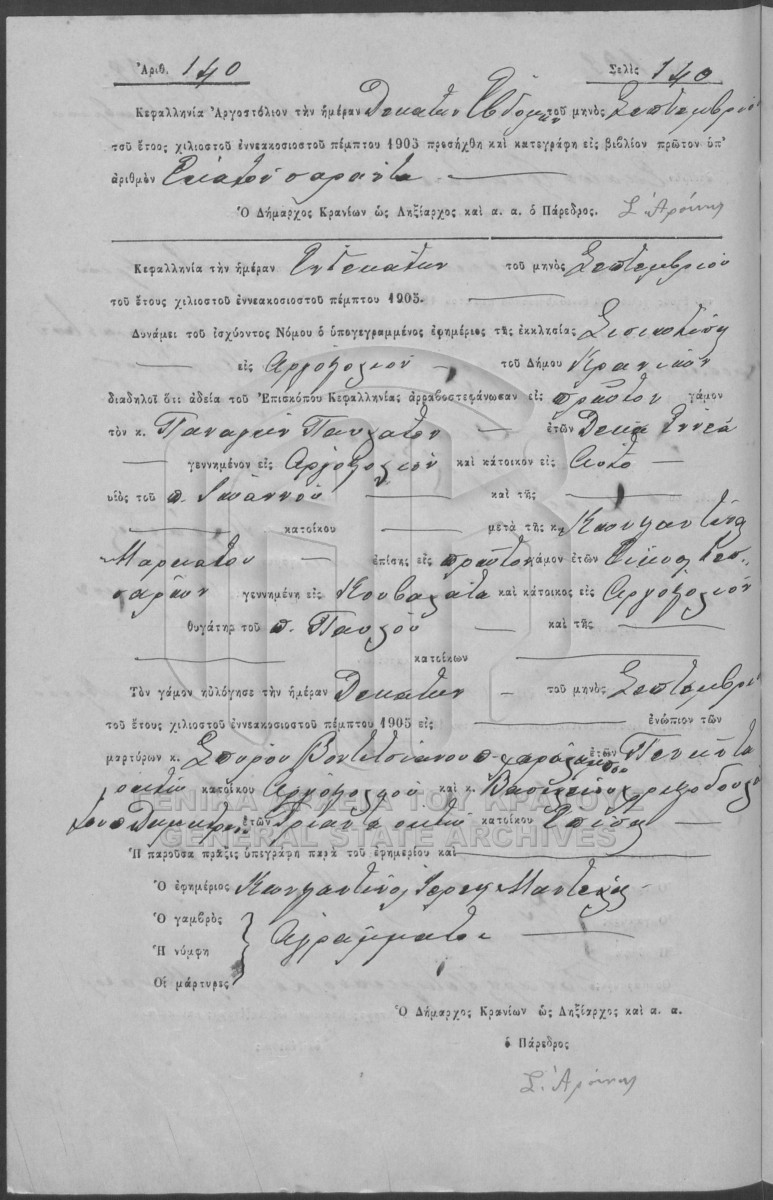 Ἀριθ. 140 Σελὶς 140
Κεφαλληνία Ἀργοστόλιον τὴν ἡμέραν Δεκάτην Ἑβδόμην τοῦ μηνὸς Σεπτεμβρίου
τοῦ ἔτους χιλιοστοῦ ἐννεακοσιοστοῦ πέμπτου 1905 προσήχθη καὶ κατεγράφη εἰς βιβλίον πρῶτον ὑπ'
ἀριθμὸν Ἑκατὸν σαράντα
Ὁ Δήμαρχος Κρανίων ὡς Ληξίαρχος καὶ α. α. ὁ Πάρεδρος.
Κεφαλληνία τὴν ἡμέραν Ἑνδεκάτην τοῦ μηνὸς Σεπτεμβρίου
τοῦ ἔτους χιλιοστοῦ ἐννεακοσιοστοῦ πέμπτου 1905.
Δυνάμει τοῦ ἰσχύοντος Νόμου ὁ ὑπογεγραμμένος ἐφημέριος τῆς ἐκκλησίας Σισιωτίσης
εἰς Ἀργοστόλιον τοῦ Δήμου Κρανίων
διαδηλοῖ ὅτι ἀδείᾳ τοῦ Ἐπισκόπου Κεφαλληνίας ἀρραβοστεφάνωσαν εἰς πρῶτον γάμον
τὸν κ. Παναγῆν Παυλάτον ἐτῶν Δέκα Ἐννέα
γεννημένον εἰς Ἀργοστόλιον καὶ κάτοικον εἰς Αὐτό
υἱὸς τοῦ π. Ἰωάννου καὶ τῆς
κατοίκου μετὰ τῆς κας Κωνσταντίνας
Μαρκάτου ἐπίσης εἰς πρῶτον γάμον ἐτῶν Εἴκοσι τεσ-
σάρων γεννημένη εἰς Κουβαλάτα καὶ κάτοικος εἰς Ἀργοστόλιον
θυγάτηρ τοῦ π. Παύλου καὶ τῆς
κατοίκων
Τὸν γάμον ηὐλόγησε τὴν ἡμέραν Δεκάτην τοῦ μηνὸς Σεπτεμβρίου
τοῦ ἔτους χιλιοστοῦ ἐννεακοσιοστοῦ πέμπτου 1905 εἰς ἐνώπιον τῶν
μαρτύρων κ. Σπύρου π. Χαραλάμπου ἐτῶν Πενῆντα
ὀκτώ κατοίκου Ἀργοστολίου καὶ κ. Βασιλείου
π. Δημητρίου ἐτῶν Τριάντα ὀκτώ κατοίκου Ἐπίσης
ΓΕΝΙΚΑ ΑΡΧΕΙΑ ΤΟΥ ΚΡΑΤΟΥΣ
GENERAL STATE ARCHIVES
Ἡ παροῦσα πρᾶξις ὑπεγράφη παρὰ τοῦ ἐφημερίου καὶ
Ὁ ἐφημέριος Κωνσταντῖνος Ἱερεὺς
Ὁ γαμβρὸς
Ἡ νύμφη Ἀγράμματοι
Οἱ μάρτυρες
Ὁ Δήμαρχος Κρανίων ὡς Ληξίαρχος καὶ α. α.
ὁ Πάρεδρος